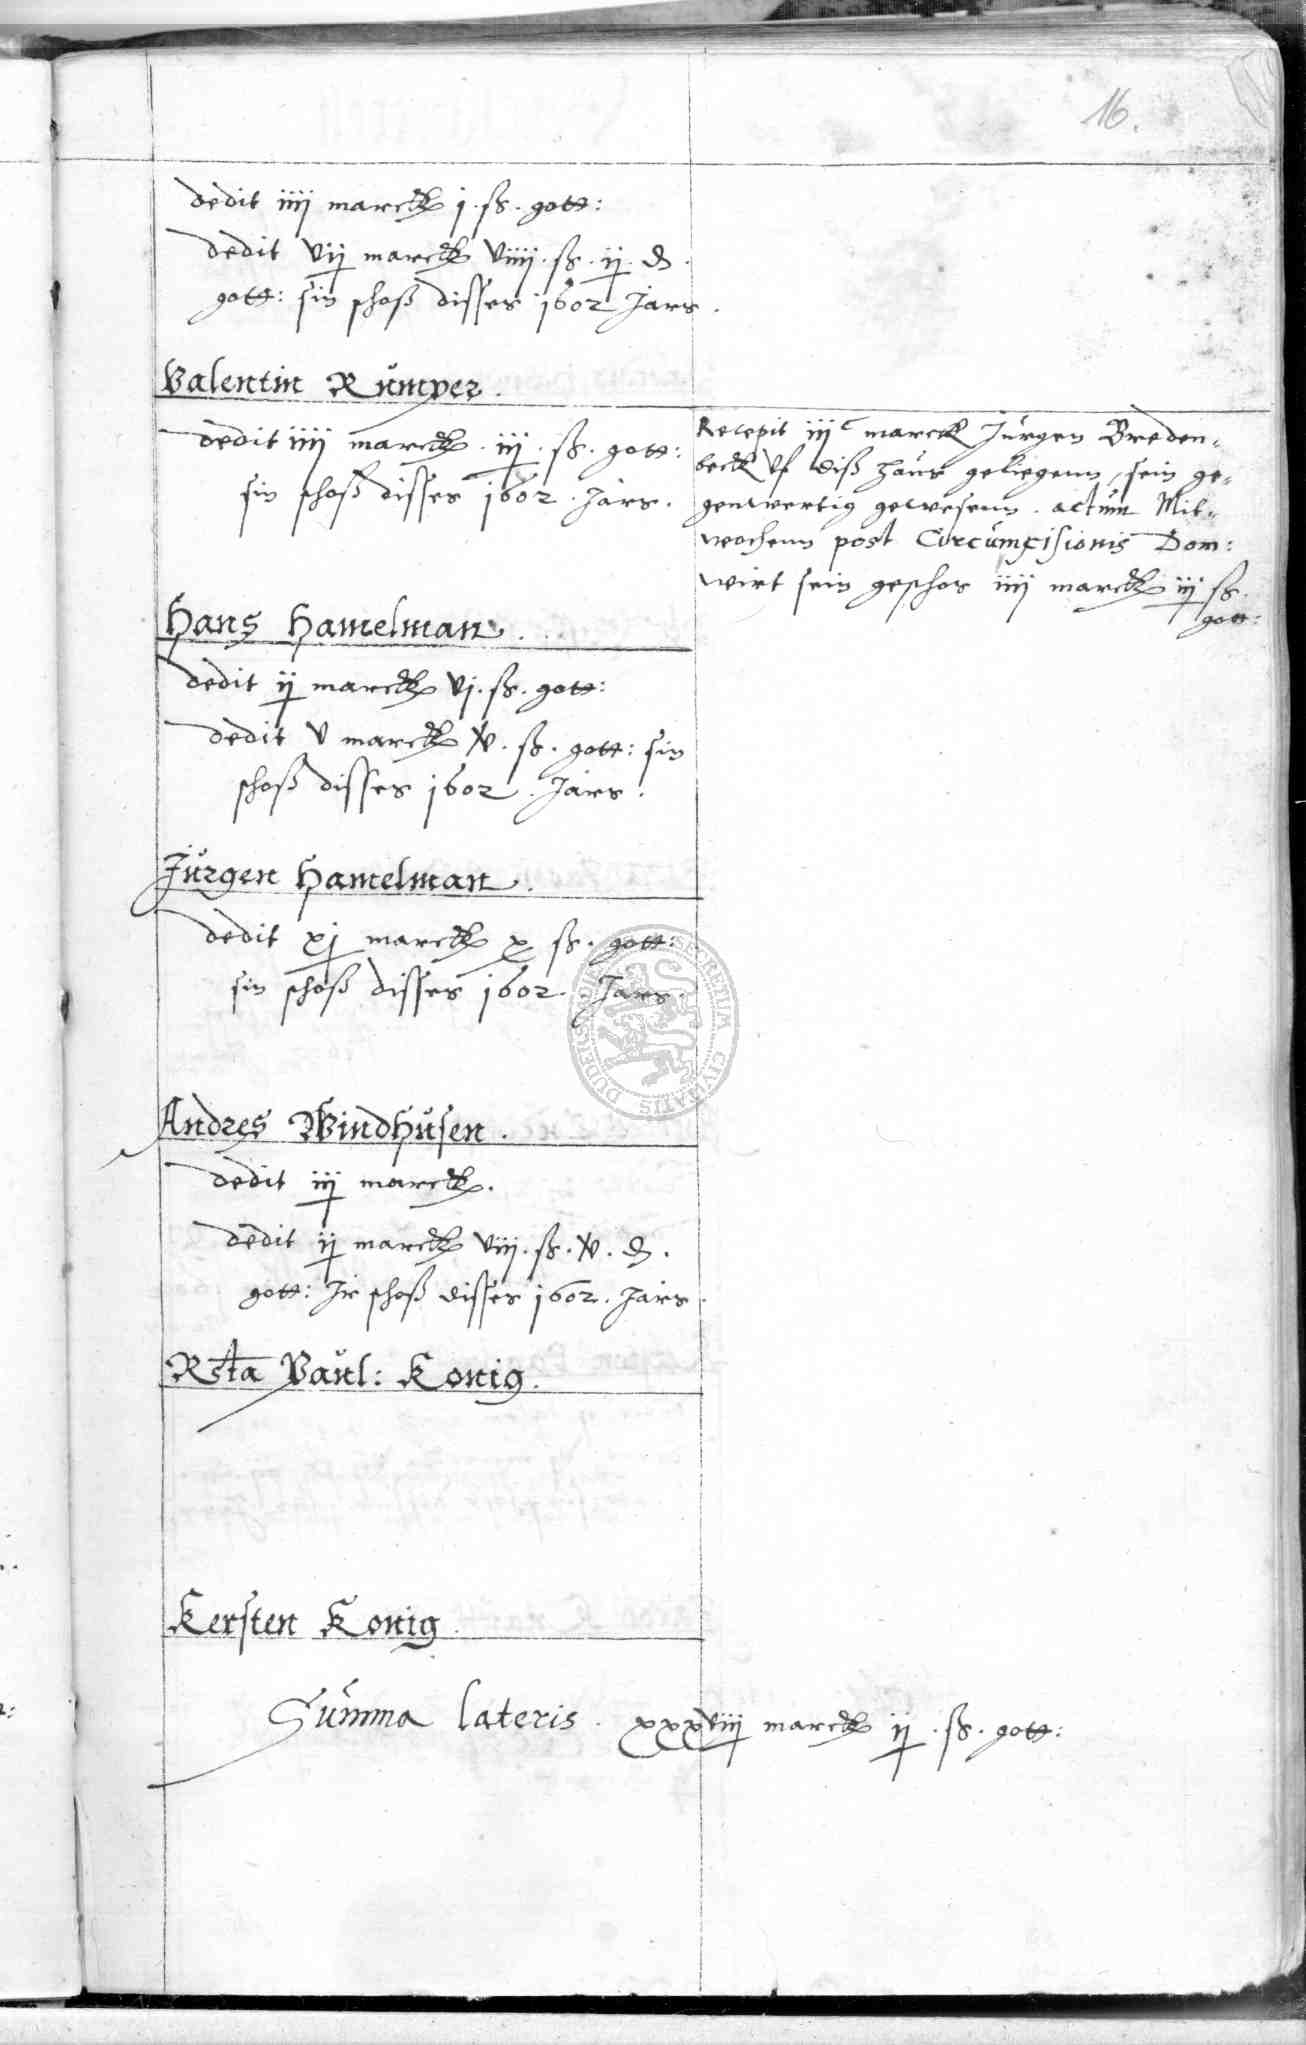 16.
dedit iiij marck j. ß. gott:
dedit vij marck viiij. ß. ij. d.
gott: sin schoß disses 1602 Jars.
Valentin Rumper.
dedit iiij marck. iij. ß. gott:
sin schoß disses 1602. Jars.
Recepit iijc marck Jurgen Breden-
beck uf diß haus geliegenn, sein ge-
genwertig gewesenn. actum Mit-
wochenn post Circumcisionis Dom:
wirt sein geschos iiij marck iij ß.
gott:
Hans Hamelman.
dedit ij marck vj. ß. gott:
dedit v marck xv. ß. gott: sin
schoß disses 1602. Jars.
Jurgen Hamelman.
dedit xj marck x ß. gott:
sin schoß disses 1602. Jars.
SECRETUM CIVITATIS DUDERSTADIENSIS
Andres Windhusen.
dedit iij marck.
dedit ij marck viij. ß. xv. d.
gott: Jr schoß disses 1602. Jars.
Rcta Paul: Konig.
Kersten Konig.
Summa lateris. xxxviij marck ij. ß. gott: